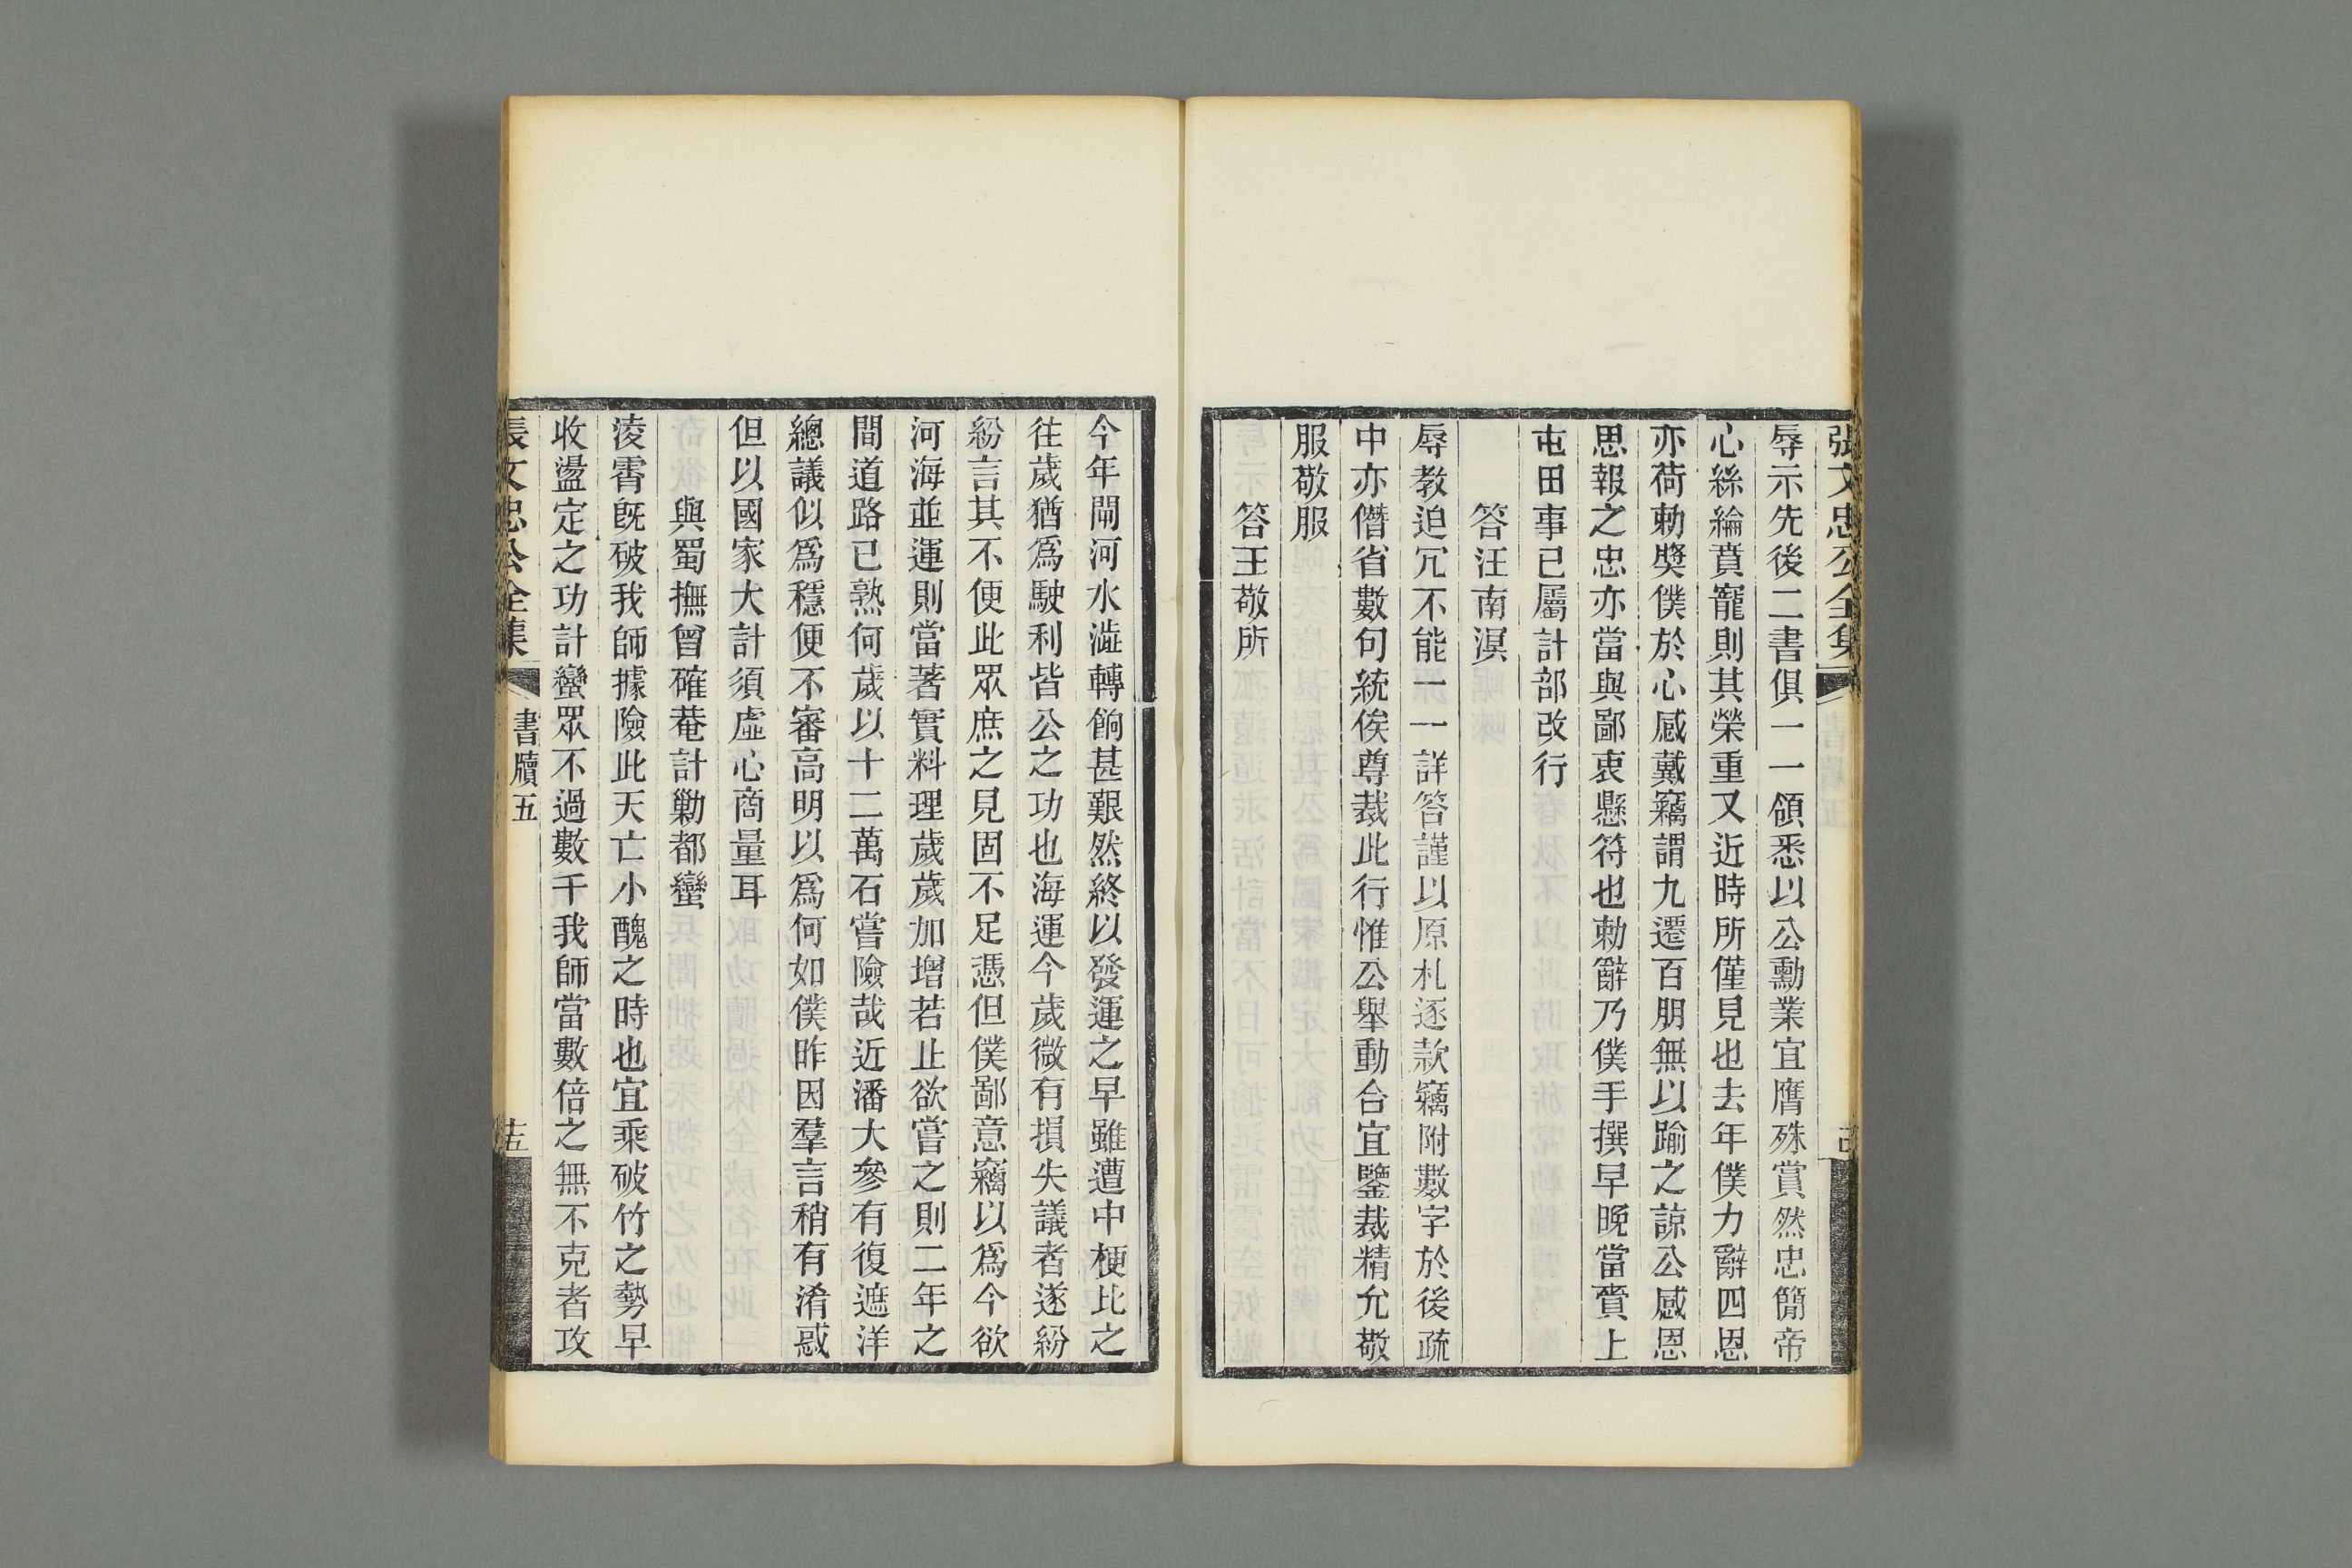 張文忠公全集
辱示先後二書俱一一領悉以公勳業宜膺殊賞然忠簡帝
心絲綸賁寵則其榮重又近時所僅見也去年僕力辭四恩
亦荷勅獎僕於心感戴竊謂九遷百朋無以踰之諒公感恩
思報之忠亦當與鄙衷懸符也勅辭乃僕手撰早晚當賫上
屯田事已屬計部改行
答汪南溟
辱教迫冗不能一一詳答謹以原札逐款竊附數字於後疏
中亦僭省數句統俟尊裁此行惟公舉動合宜鑒裁精允敬
服敬服
答王敬所
今年閘河水澁轉餉甚艱然終以發運之早雖遭中梗比之
往歲猶爲駛利皆公之功也海運今歲微有損失議者遂紛
紛言其不便此眾庶之見固不足憑但僕鄙意竊以爲今欲
河海並運則當著實料理歲歲加增若止欲嘗之則二年之
間道路已熟何歲以十二萬石嘗險哉近潘大參有復遮洋
總議似爲穩便不審高明以爲何如僕昨因羣言稍有淆惑
但以國家大計須虛心商量耳
與蜀撫曾確菴計勦都蠻
淩霄旣破我師據險此天亡小醜之時也宜乘破竹之勢早
收盪定之功計蠻眾不過數千我師當數倍之無不克者攻
張文忠公全集
書牘五
十五